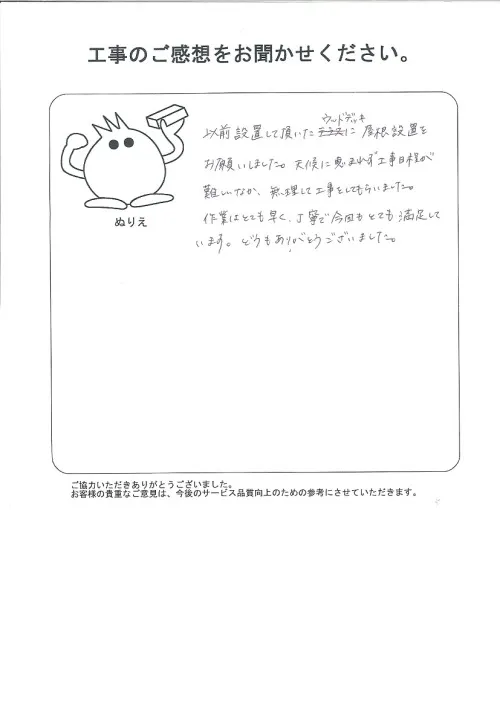 工事のご感想をお聞かせください。
ウッドデッキ
以前設置して頂いた テラスに 屋根設置を
お願いしました。天候に恵まれず工事日程が
難しいなか、無理して工事をしてもらいました。
作業はとても早く、丁寧で今回もとても満足して
います。どうもありがとうございました。
ぬりえ
ご協力いただきありがとうございました。
お客様の貴重なご意見は、今後のサービス品質向上のための参考にさせていただきます。